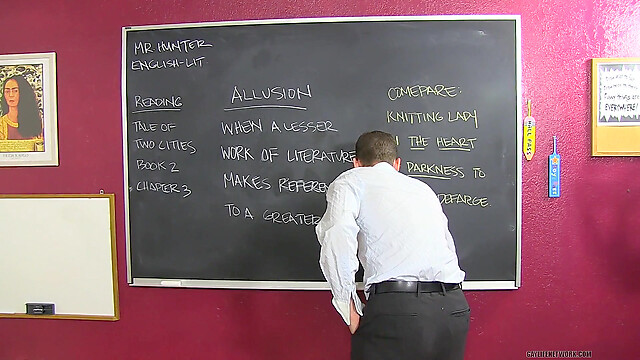 MR HUNTER
ENGLISH-LIT
READING
TALE OF
TWO CITIES
BOOK 2
CHAPTER 3
ALLUSION
WHEN A LESSER
WORK OF LITERATURE
MAKES REFEREN
TO A GREATER
COMEPARE:
KNITTING LADY
THE HEART
DARKNESS TO
DEFARGE
HALL PASS
EVERYWHERE!
GAYLIFENETWORK.COM